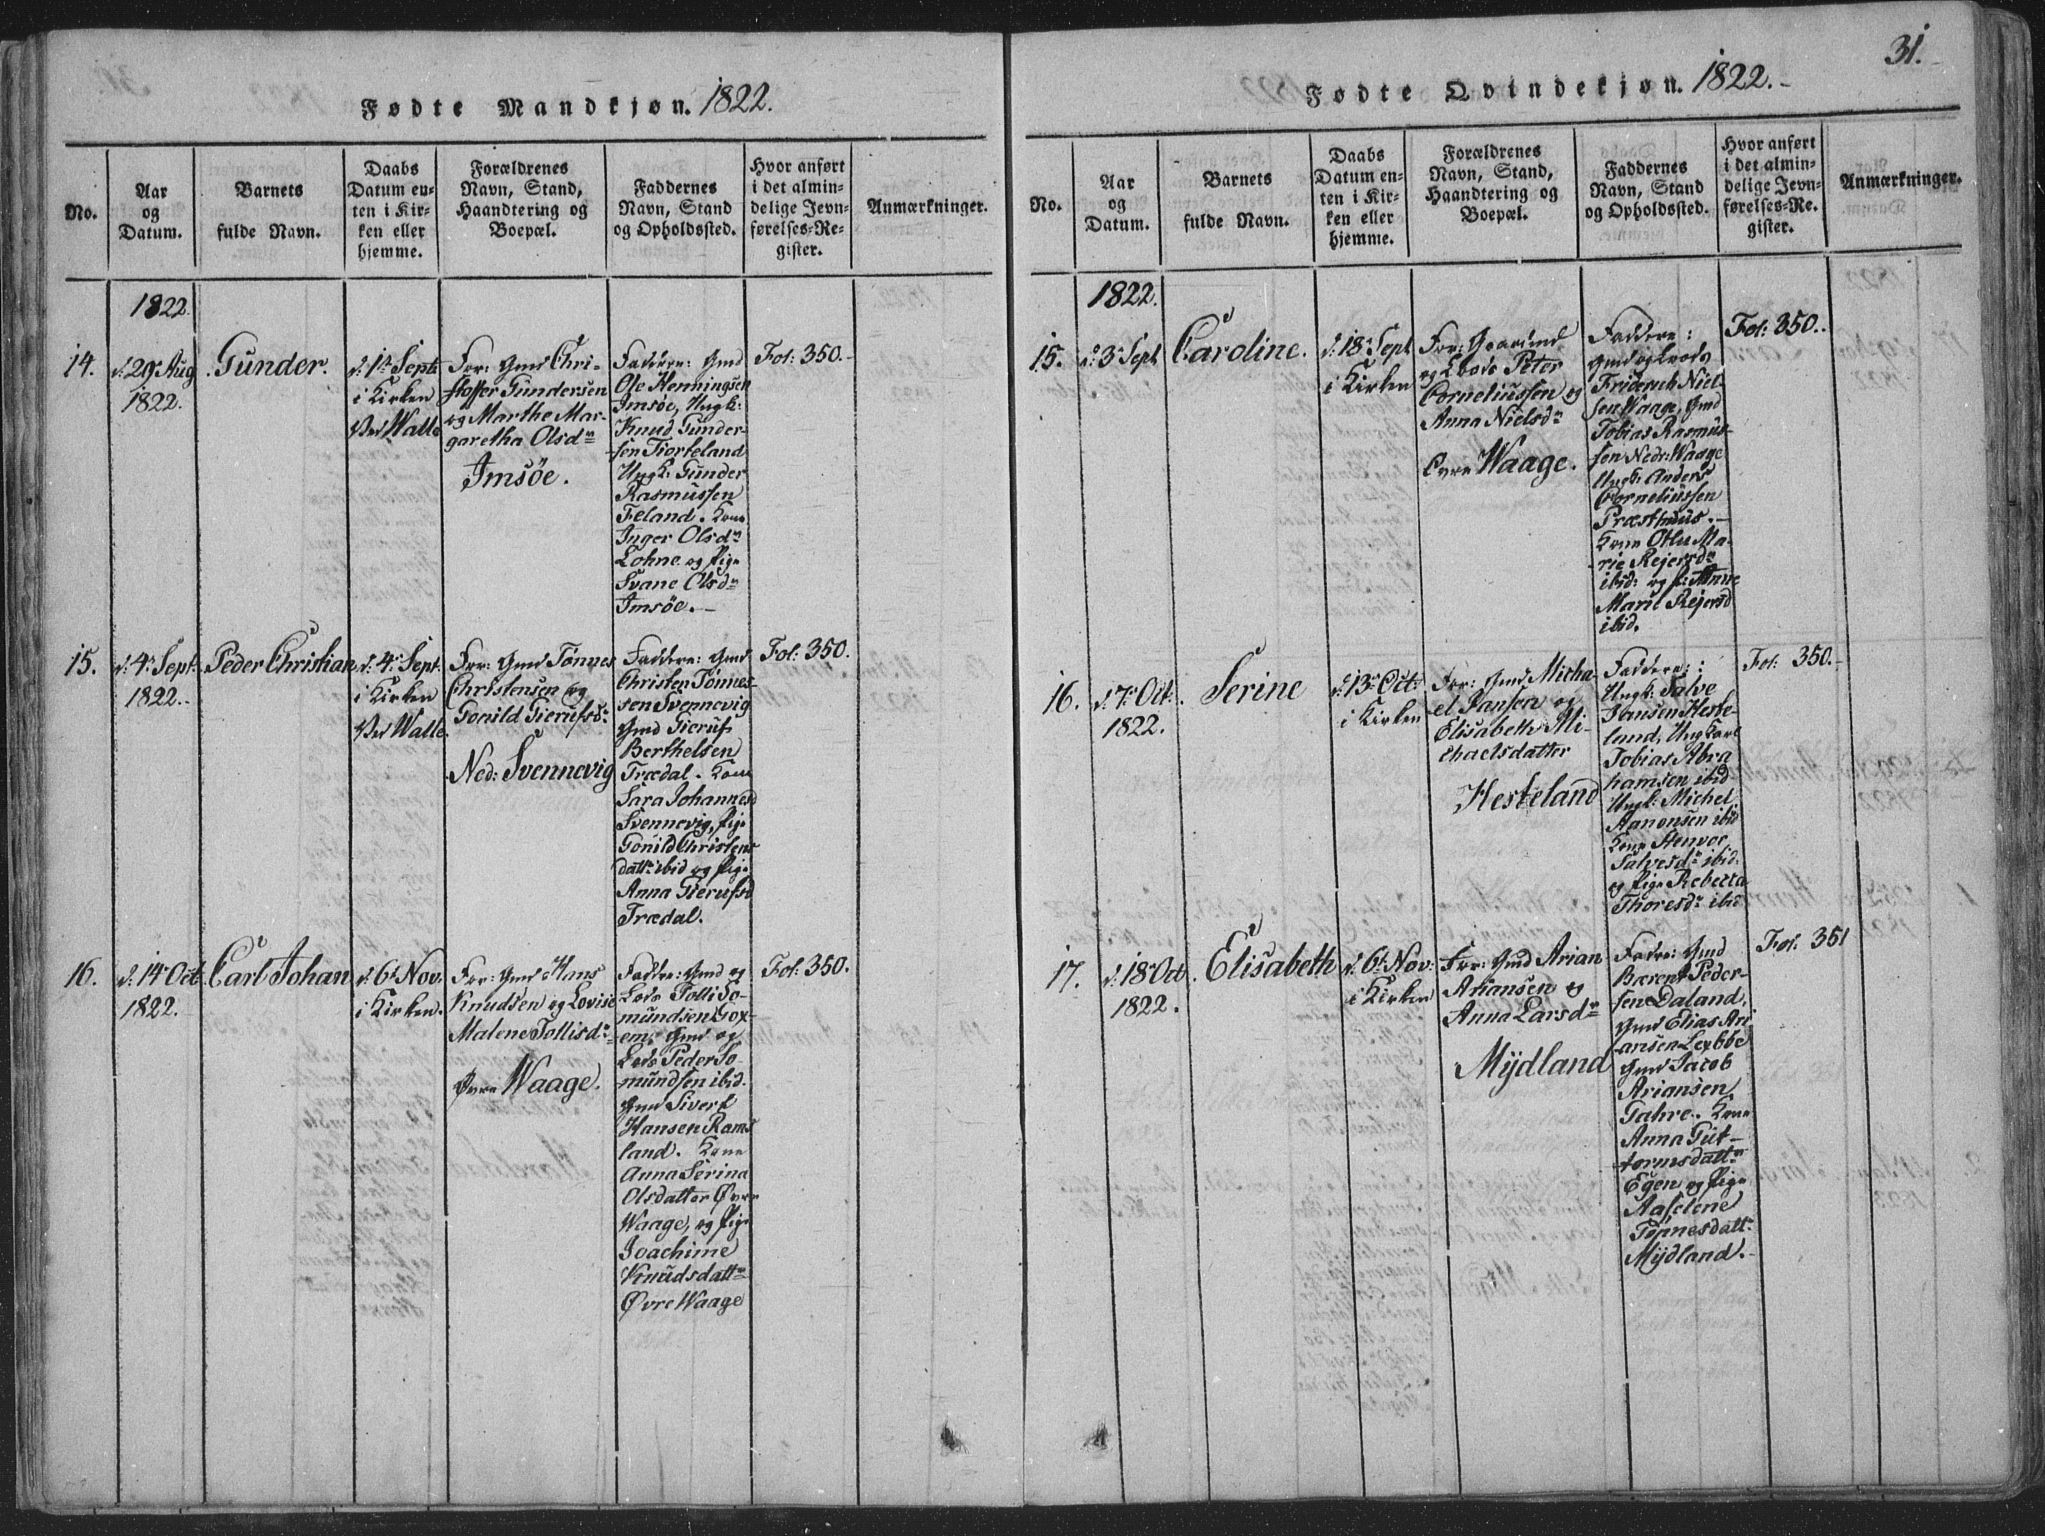 Fødte Mandkjøn. 1822.
No.
Aar
og
Datum.
Barnets
fulde Navn.
Daabs
Datum en-
ten i Kir-
ken eller
hjemme.
Forældrenes
Navn, Stand,
Haandtering og
Boepæl.
Faddernes
Navn, Stand
og Opholdssted.
Hvor anført
i det almin-
delige Jevn-
førelses-Re-
gister.
Anmærkninger.
1822.
14.
d: 29r Aug
1822.
Gunder.
d: 1te Sept:
i Kirken
Ved Walle
For: Gmd Chri-
stoffer Gundersen
og Marthe Mar-
garetha Olsdr
Imsøe.
Faddere: Gmd
Ole Henningsen
Imsøe, Ungk:
Knud Gunder-
sen Tiorteland
Ungk: Gunder
Rasmussen
Feland. Kone
Inger Olsdr
Lohne og Pige
Svane Olsdr
Imsøe.
Fol: 350.
15.
d: 4r Sept:
1822.
Peder Christian
d: 4r Sept.
i Kirken
Ved Walle.
For: Gmd Tønnes
Christensen og
Gonild Gierufsdr
Ned: Svennevig
Faddere: Gmd
Christen Tønnes-
sen Svennevig
Gmd Gieruf
Berthelsen
Trædal. Kone
Sara Johannesd
Svennevig, Pige
Gonild Christens
dattr ibid og Pige
Anna Gierufsd
Trædal.
Fol: 350.
16.
d: 14r Oct
1822.
Carl Johan
d: 6t Nov:
i Kirken.
For: Gmd Hans
Knudsen og Lovise
Malene Tollisdr
Øvre Waage.
Faddre: Gmd og
Lods Tolli So-
mundsen Gox-
em, Gmd og
Lods Peder So-
mundsen ibid.
Gmd Sivert
Hansen Rams
land. Kone
Anna Serina
Olsdatter Øvre
Waage, og Pige
Joachime
Knudsdattr
Øvre Waage
Fol: 350.
31.
Fødte Qvindekjøn. 1822.
No.
Aar
og
Datum.
Barnets
fulde Navn.
Daabs
Datum en-
ten i Kir-
ken eller
hjemme.
Forældrenes
Navn, Stand,
Haandtering og
Boepæl.
Faddernes
Navn, Stand
og Opholdssted.
Hvor anført
i det almin-
delige Jevn-
førelses-Re-
gister.
Anmærkninger.
1822.
15.
d: 3r Sept
Caroline.
d: 18r Sept
i Kirken
For: Gaardmd
og Lods Peter
Corneliussen og
Anna Nielsdr
Øvre Waage.
Faddere:
Gmd og Lods
Friderich Niel-
sen Waage, Gmd
Tobias Rasmus-
sen Nedr: Waage
Ungk: Anders
Corneliussen
Præsthuus.
Kone Ma-
rie Rejersdr
ibid: og P: Anne
Marie Rejersd
ibid.
Fol: 350.
16.
d: 7r Oct:
1822.
Serine
d: 13r Oct:
i Kirken
For: Gmd Micha-
el Jansen og
Elisabeth Mi-
chaelsdatter
Hesteland
Faddere:
Ungk: Salve
Jansen Heste-
land, Ungkarl
Tobias Abra
hamsen ibid
Ungk: Michel
Aanonsen ibid
Kone Stenvoe
Salvesdr ibid.
og Pige Rebecca
Thoresdr ibid
Fol: 350.
17.
d: 18r Oct
1822.
Elisabeth
d: 6t Nov:
i Kirken
For: Gmd Arian
Ariansen og
Anna Larsdr
Mÿdland
Fadre: Gmd
Barent Peder-
sen Daland,
Gmd Elias Ari
ansen
Gmd Jacob
Ariansen
Gahre. Kone
Anna Gut-
tormsdattr
Egen og Pige
Aaselene
Tønnesdattr
Mÿdland.
Fol: 351